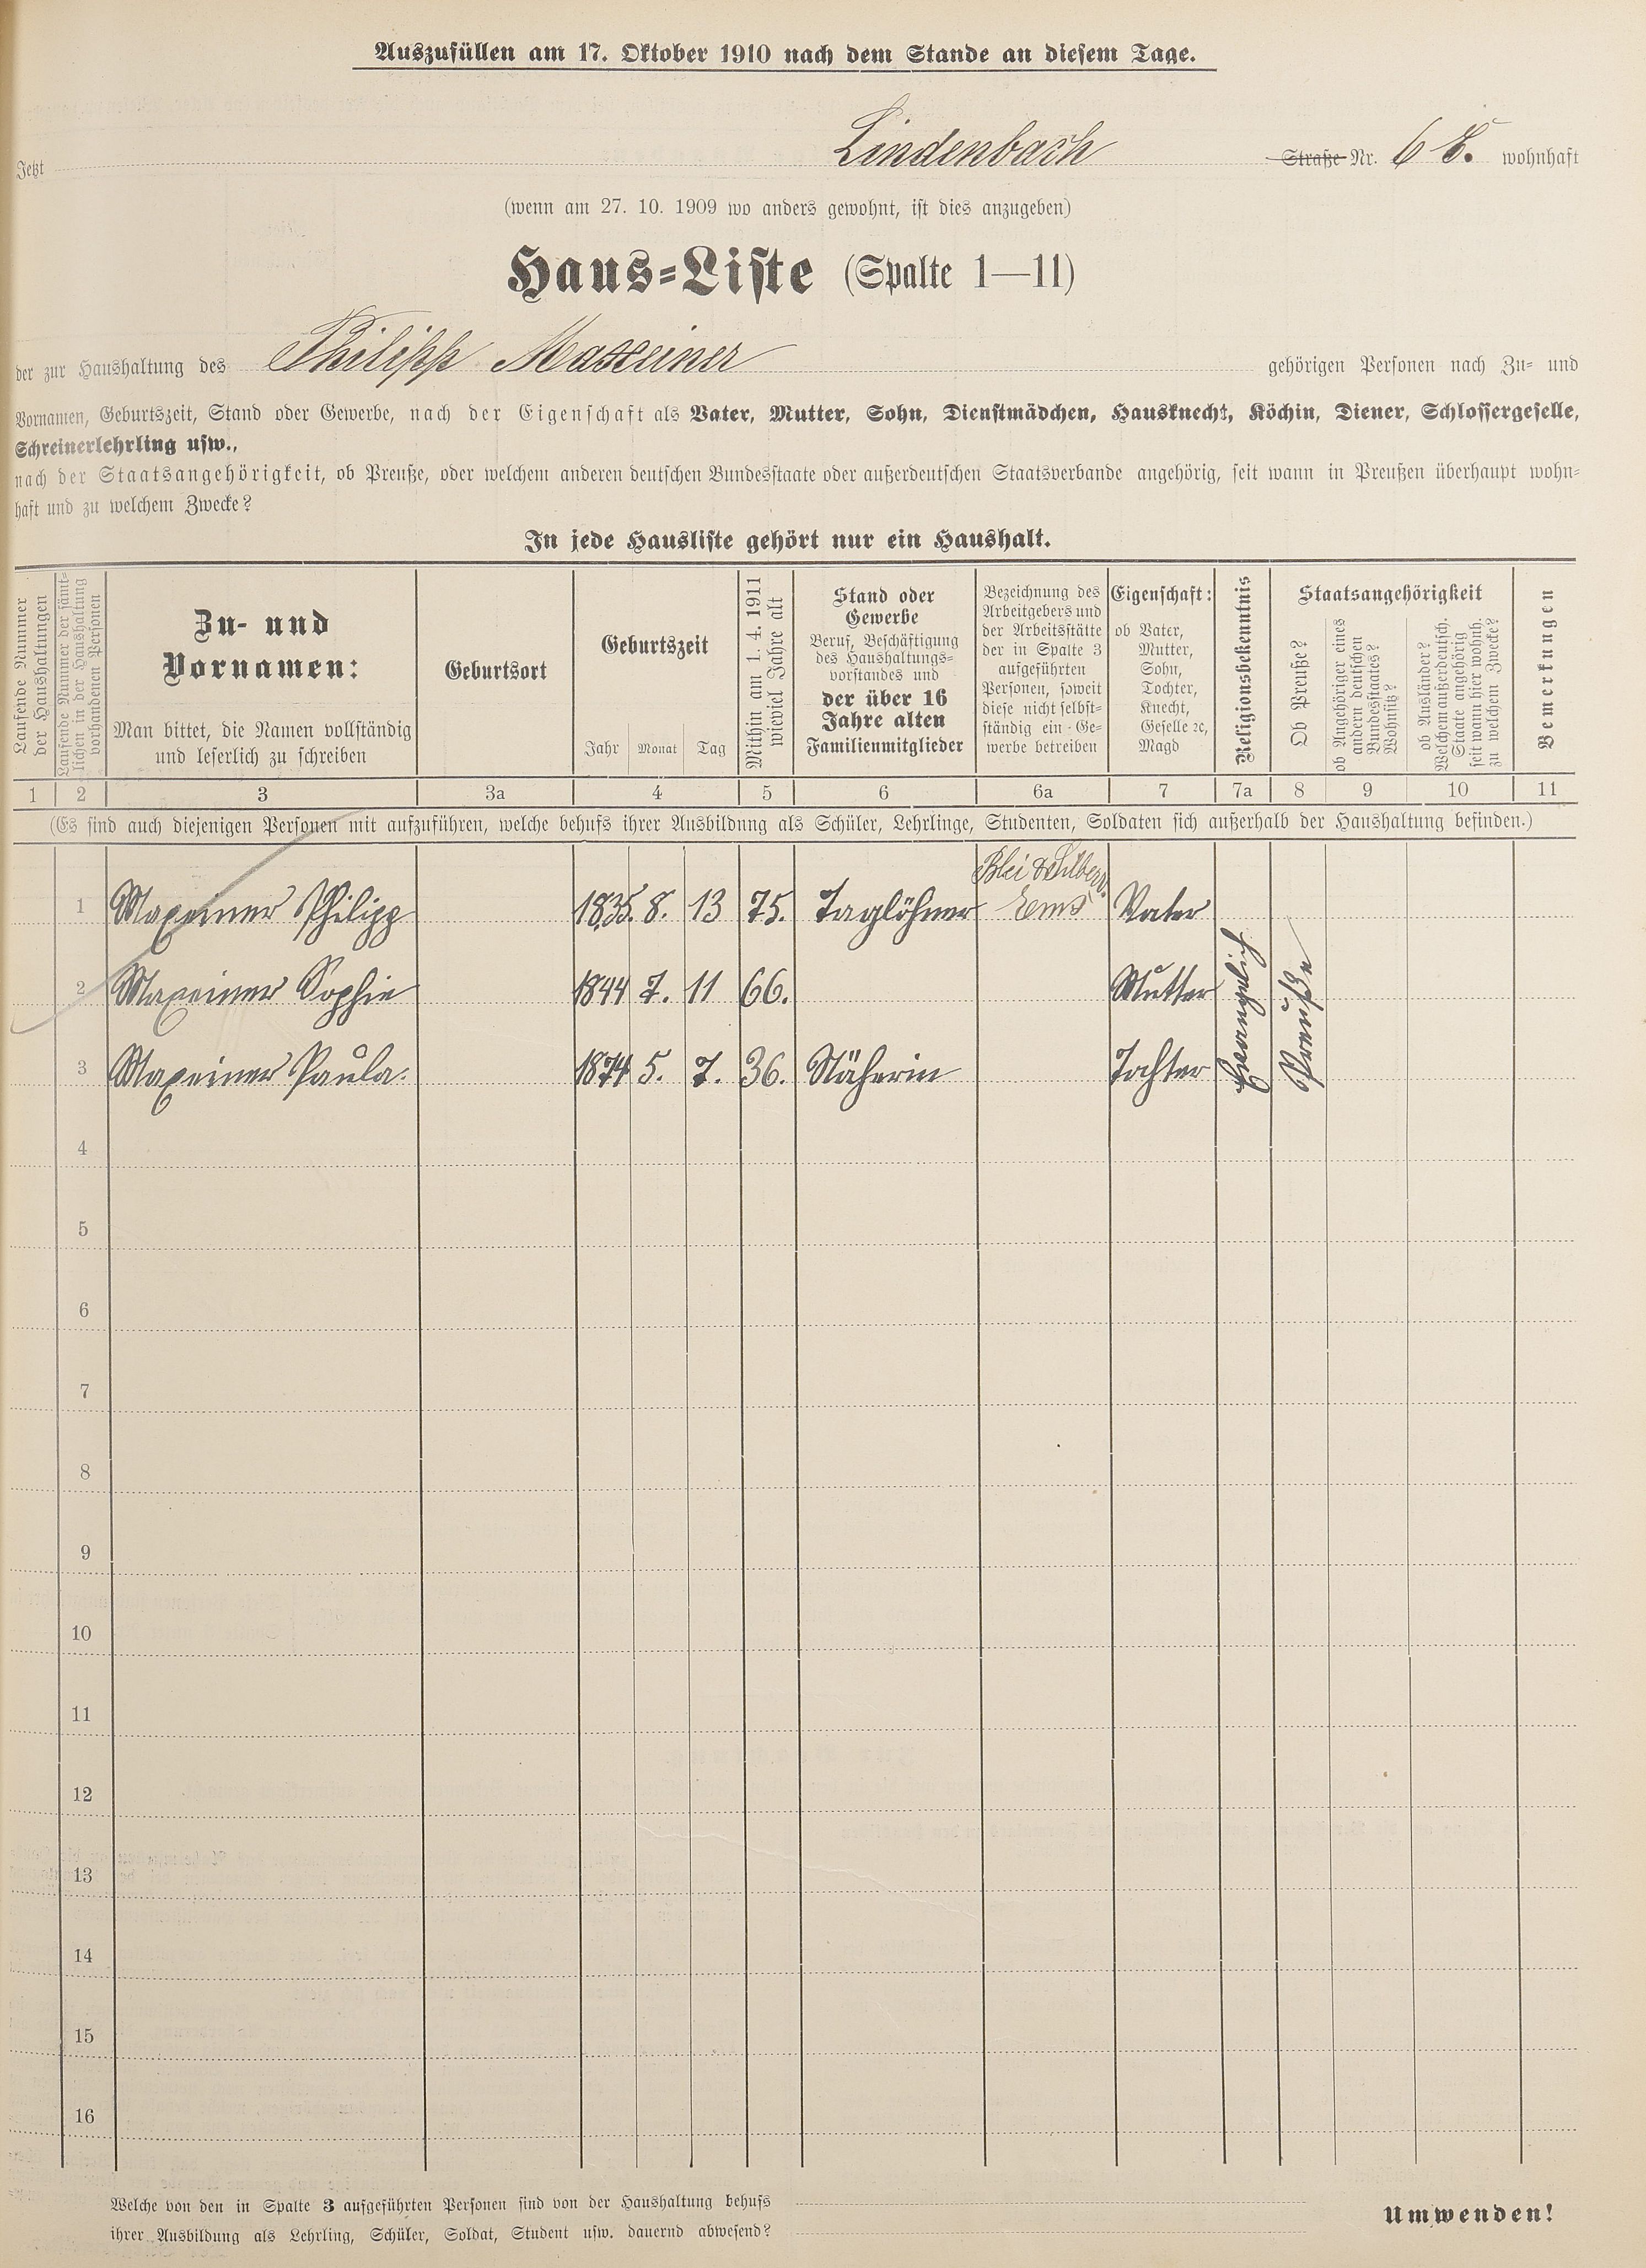 Auszufüllen am 17. Oktober 1910 nach dem Stande an diesem Tage.
Jetzt Lindenbach Straße Nr. 6 wohnhaft
(wenn am 27. 10. 1909 wo anders gewohnt, ist dies anzugeben)
Haus-Liste (Spalte 1—11)
der zur Haushaltung des Philipp Maxeiner gehörigen Personen nach Zu- und
Vornamen, Geburtszeit, Stand oder Gewerbe, nach der Eigenschaft als Vater, Mutter, Sohn, Dienstmädchen, Hausknecht, Köchin, Diener, Schlossergeselle,
Schreinerlehrling usw.,
nach der Staatsangehörigkeit, ob Preuße, oder welchem anderen deutschen Bundesstaate oder außerdeutschen Staatsverbande angehörig, seit wann in Preußen überhaupt wohn-
haft und zu welchem Zwecke?
In jede Hausliste gehört nur ein Haushalt.
Laufende Nummer
der Haushaltungen
Laufende Nummer der sämt-
lichen in der Haushaltung
vorhandenen Personen
Zu- und
Vornamen:
Man bittet, die Namen vollständig
und leserlich zu schreiben
Geburtsort
Geburtszeit
Jahr Monat Tag
Mithin am 1. 4. 1911
wieviel Jahre alt
Stand oder
Gewerbe
Beruf, Beschäftigung
des Haushaltungs-
vorstandes und
der über 16
Jahre alten
Familienmitglieder
Bezeichnung des
Arbeitgebers und
der Arbeitsstätte
der in Spalte 3
aufgeführten
Personen, soweit
diese nicht selbst-
ständig ein Ge-
werbe betreiben
Eigenschaft:
ob Vater,
Mutter,
Sohn,
Tochter,
Knecht,
Geselle ꝛc,
Magd
Religionsbekenntnis
Staatsangehörigkeit
Ob Preuße?
ob Angehöriger eines
andern deutschen
Bundesstaates?
Wohnsitz?
ob Ausländer?
Welchem außerdeutsch.
Staate angehörig
seit wann hier wohnh.
zu welchem Zwecke?
Bemerkungen
1 2 3 3a 4 5 6 6a 7 7a 8 9 10 11
(Es sind auch diejenigen Personen mit aufzuführen, welche behufs ihrer Ausbildung als Schüler, Lehrlinge, Studenten, Soldaten sich außerhalb der Haushaltung befinden.)
1 Maxeiner Philipp 1835. 8. 13 75. Taglöhner Blei & Silberw. Ems Vater
2 Maxeiner Sophie 1844 7. 11 66. Mutter
3 Maxeiner Paula. 1874 5. 7. 36. Näherin Tochter
Evangelisch
Preuße
4
5
6
7
8
9
10
11
12
13
14
15
16
Welche von den in Spalte 3 aufgeführten Personen sind von der Haushaltung behufs
ihrer Ausbildung als Lehrling, Schüler, Soldat, Student usw. dauernd abwesend?
Umwenden!